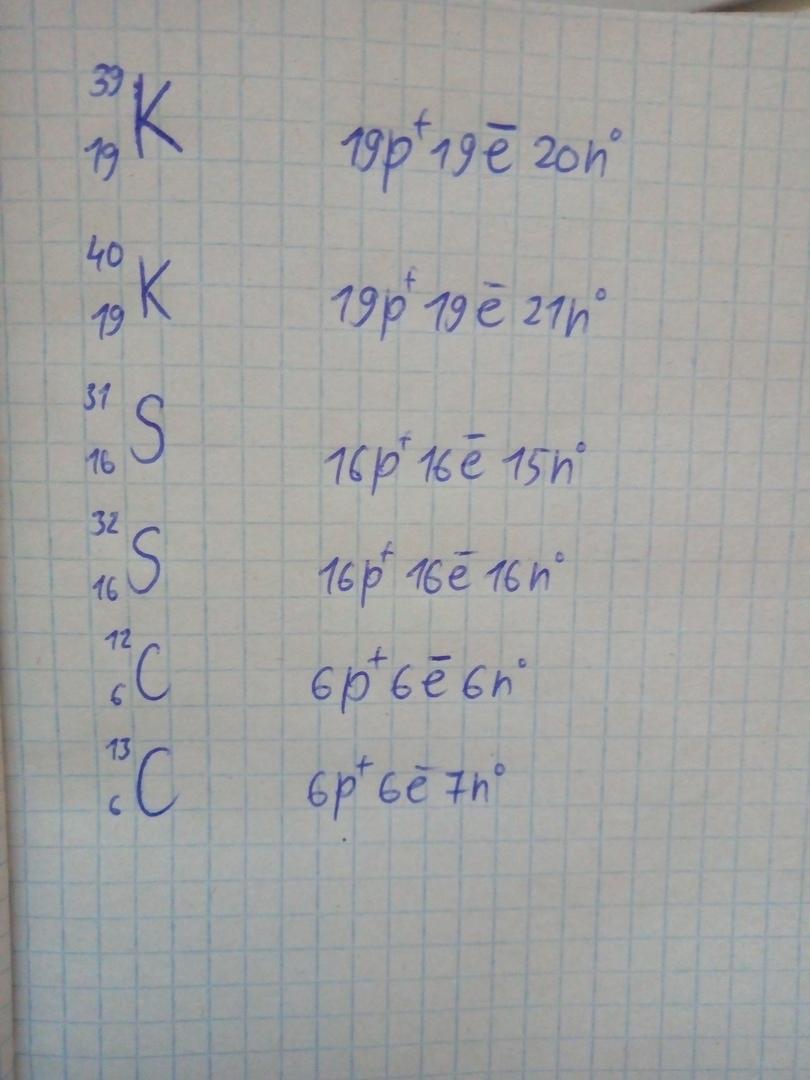 ³⁹₁₉K 19p⁺ 19e̅ 20n⁰
⁴⁰₁₉K 19p⁺ 19e̅ 21n⁰
³¹₁₆S 16p⁺ 16e̅ 15n⁰
³²₁₆S 16p⁺ 16e̅ 16n⁰
¹²₆C 6p⁺ 6e̅ 6n⁰
¹³₆C 6p⁺ 6e̅ 7n⁰